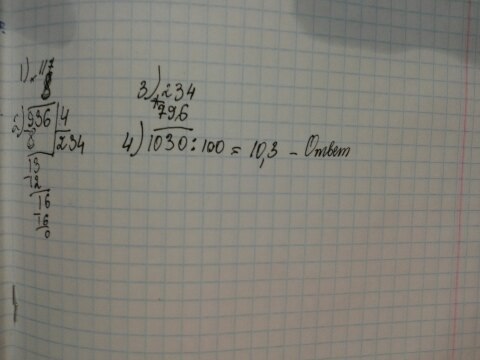 1) × 117
8
2) 936 | 4
8 | 234
13
12
16
16
0
3) 234
+ 796
4) 1030 : 100 = 10,3 – Ответ